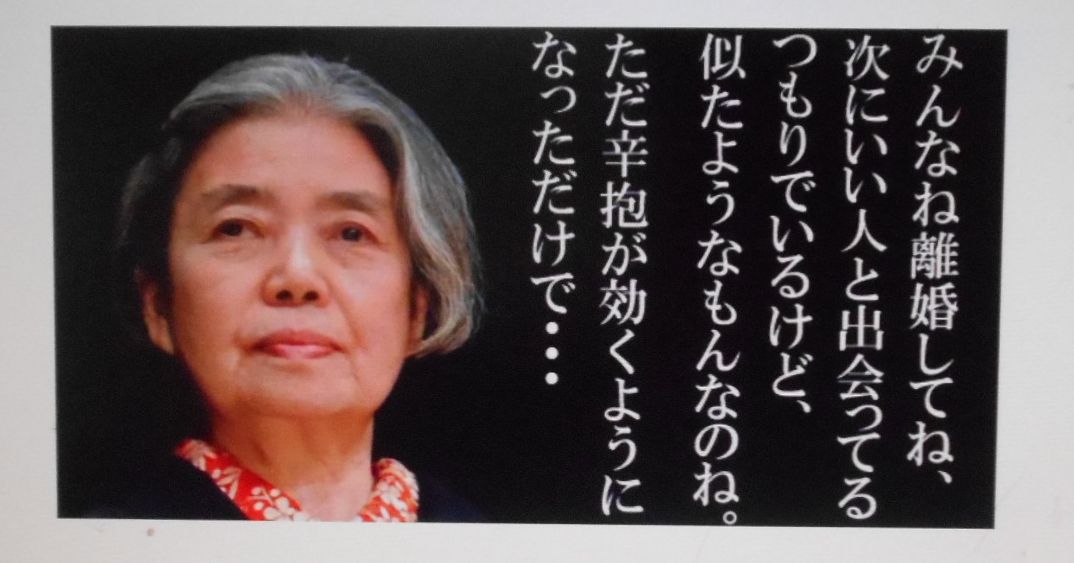 みんなね離婚してね、
次にいい人と出会ってる
つもりでいるけど、
似たようなもんなのね。
ただ辛抱が効くように
なっただけで・・・